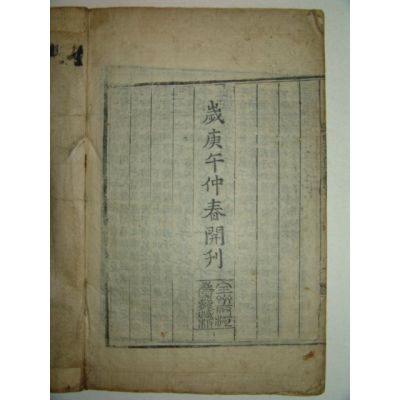 歲庚午仲春開刊